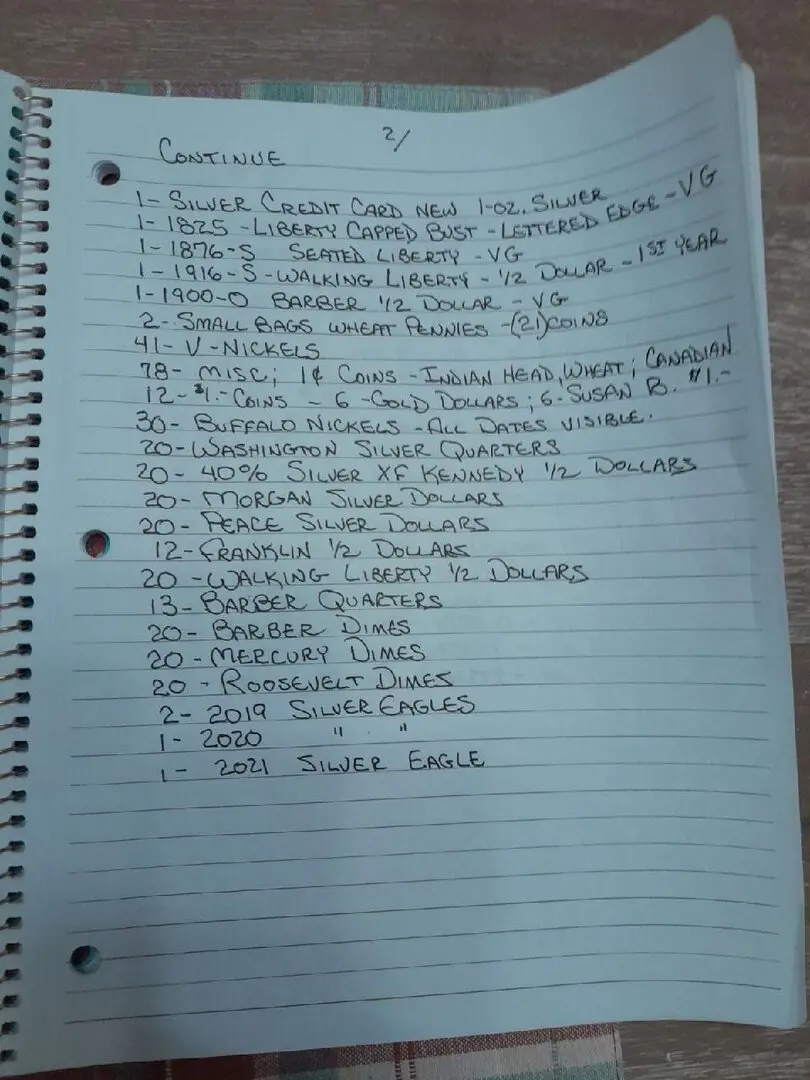 2/
CONTINUE
1- SILVER CREDIT CARD NEW 1-OZ. SILVER
1- 1825 - LIBERTY CAPPED BUST - LETTERED EDGE - VG
1- 1876-S SEATED LIBERTY - VG
1- 1916-S - WALKING LIBERTY - 1/2 DOLLAR - 1ST YEAR
1- 1900-O BARBER 1/2 DOLLAR - VG
2- SMALL BAGS WHEAT PENNIES -(21)COINS
41- V-NICKELS
78- MISC; 1¢ COINS - INDIAN HEAD, WHEAT; CANADIAN
12- $1.- COINS - 6 - GOLD DOLLARS; 6- SUSAN B. $1.-
30- BUFFALO NICKELS - ALL DATES VISIBLE.
20- WASHINGTON SILVER QUARTERS
20- 40% SILVER XF KENNEDY 1/2 DOLLARS
20- MORGAN SILVER DOLLARS
20- PEACE SILVER DOLLARS
12- FRANKLIN 1/2 DOLLARS
20 - WALKING LIBERTY 1/2 DOLLARS
13- BARBER QUARTERS
20- BARBER DIMES
20- MERCURY DIMES
20 - ROOSEVELT DIMES
2- 2019 SILVER EAGLES
1- 2020 " "
1- 2021 SILVER EAGLE